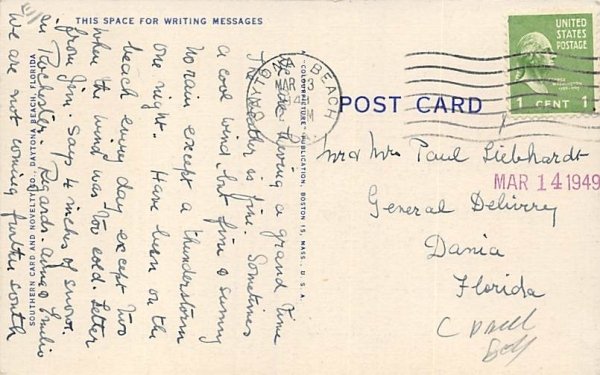 THIS SPACE FOR WRITING MESSAGES
We are having a grand time
The weather is fine. Sometimes
a cool wind but fine & sunny
No rain except a thunderstorm
one night. Have been on the
beach every day except two
when the wind was too cold. Letter
from Jim. Says 4 inches of snow
in Rochester. Regards. Anna & Emilio
We are not coming further south
SOUTHERN CARD AND NOVELTY CO., DAYTONA BEACH, FLORIDA
"COLOURPICTURE" PUBLICATION, BOSTON 15, MASS., U.S.A.
BEACH
MAR 3
POST CARD
UNITED
STATES
POSTAGE
1 CENT 1
Mr & Mrs Paul Liebhardt
MAR 14 1949
General Delivery
Dania
Florida